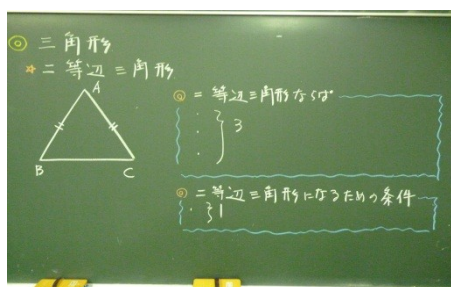 ◎ 三角形
☆ 二等辺三角形
A
B
C
◎ 二等辺三角形ならば
・
・
・
3
◎ 二等辺三角形になるための条件
・
1